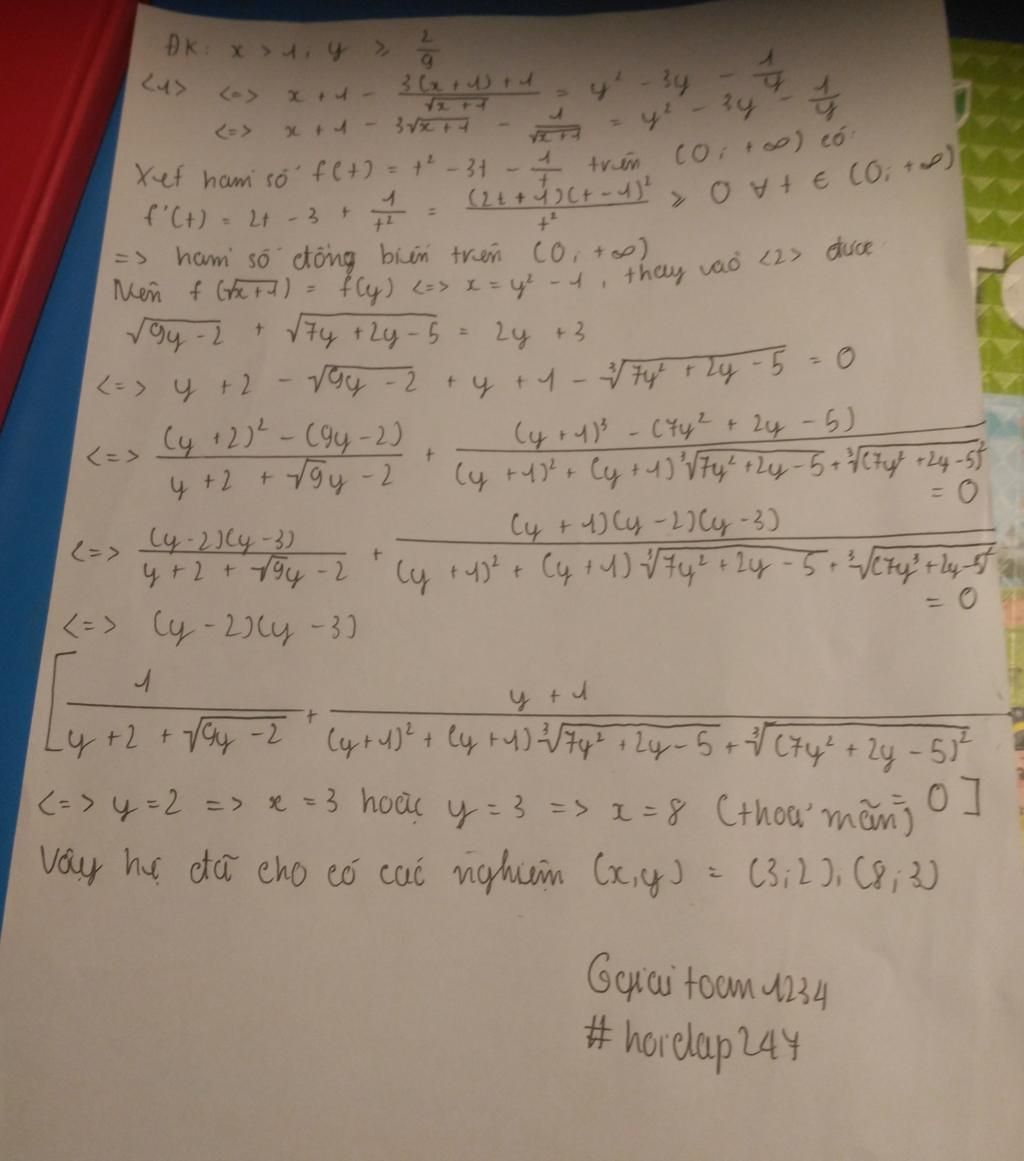 ĐK: x > 1; y ≥ 2/9
<1> <=> x + 1 - (3(x+1)+1)/√(x+1) = y² - 3y - 1/y
<=> x + 1 - 3√(x+1) - 1/√(x+1) = y² - 3y - 1/y
Xét hàm số f(t) = t² - 3t - 1/t trên (0; +∞) có:
f'(t) = 2t - 3 + 1/t² = (2t+1)(t-1)²/t² ≥ 0 ∀ t ∈ (0; +∞)
=> hàm số đồng biến trên (0; +∞)
Nên f(√(x+1)) = f(y) <=> x = y² - 1, thay vào <2> được
√(9y-2) + √(7y+2y-5) = 2y + 3
<=> y + 2 - √(9y-2) + y + 1 - ∛(7y²+2y-5) = 0
<=> ((y+2)² - (9y-2))/(y+2+√9y-2) + ((y+1)³ - (7y²+2y-5))/((y+1)² + (y+1)∛(7y²+2y-5) + ∛(7y²+2y-5)²) = 0
<=> (y-2)(y-3)/(y+2+√9y-2) + (y+1)(y-2)(y-3)/((y+1)² + (y+1)∛(7y²+2y-5) + ∛(7y³+2y-5)²) = 0
<=> (y-2)(y-3)
[1/(y+2+√(9y-2)) + (y+1)/((y+1)² + (y+1)∛(7y²+2y-5) + ∛(7y²+2y-5)²) = 0]
<=> y = 2 => x = 3 hoặc y = 3 => x = 8 (thoả mãn)
Vậy hệ đã cho có các nghiệm (x,y) = (3;2); (8;3)
Ggiaitoan1234
#hoidap247